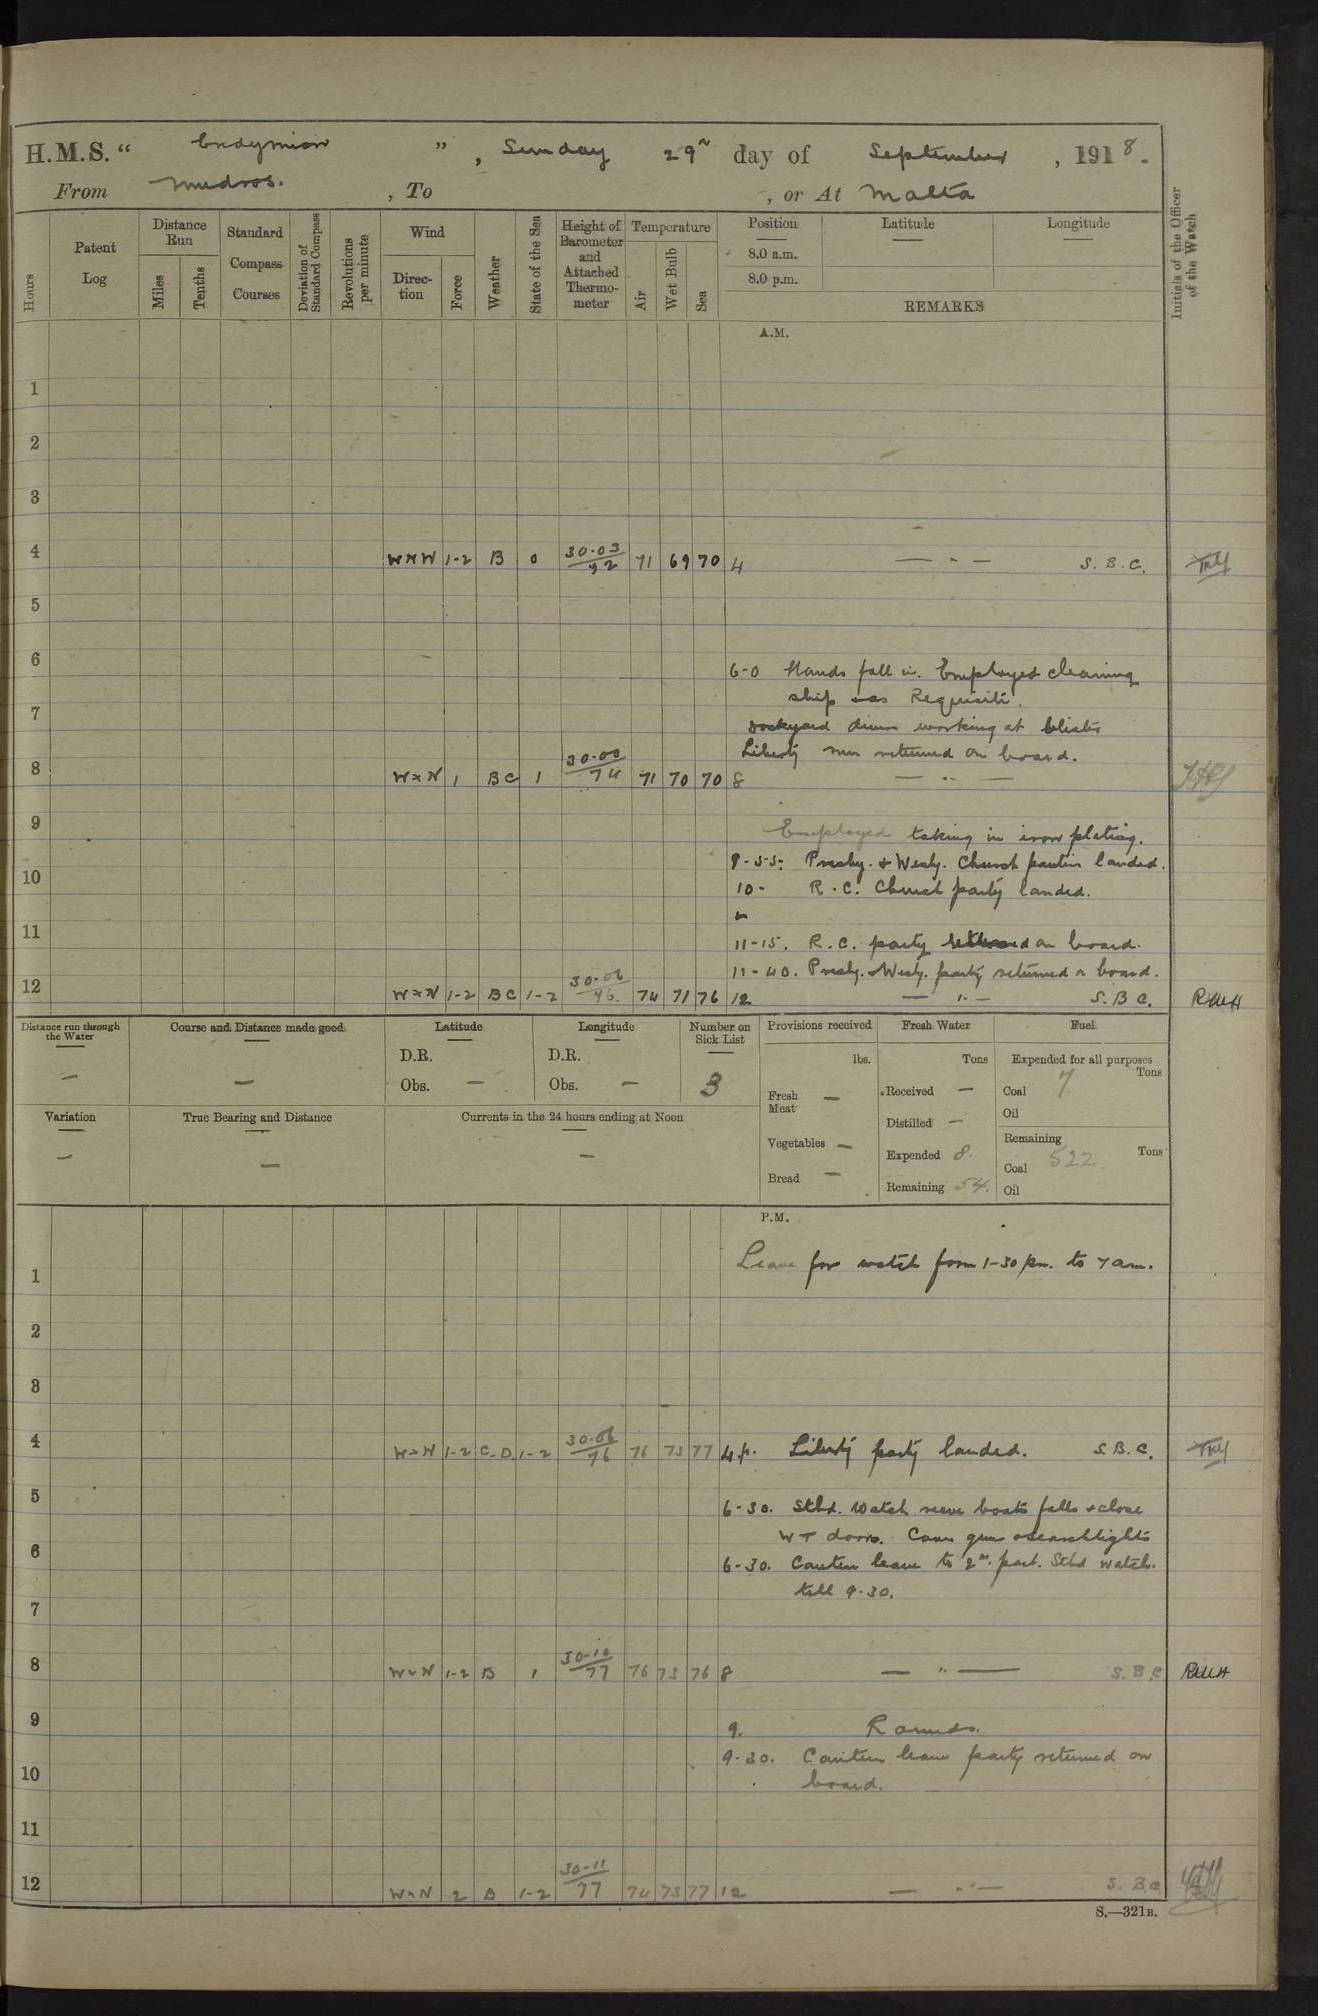 H.M.S. “ Endymion ” , Sunday 29th day of September , 1918.
From Mudros. , To , or At Malta
Hours
Patent Log
Distance Run
Miles
Tenths
Standard Compass Courses
Deviation of Standard Compass
Revolutions per minute
Wind
Direction
Force
Weather
State of the Sea
Height of Barometer and Attached Thermometer
Temperature
Air
Wet Bulb
Sea
Position
8.0 a.m.
8.0 p.m.
Latitude
Longitude
REMARKS
Initials of the Officer of the Watch
A.M.
1
2
3
4 WNW 1-2 B 0 30·03 71 69 70 4 — " — S.B.C.
5
6
6-0 Hands fall in. Employed cleaning
ship & as Requisite.
7
Dockyard divers working at blister
Liberty men returned on board.
8 W×N 1 BC 1 30·00/74 71 70 70 8 — " —
9
Employed taking in iron plating.
8-55: Presby. & Wesly. Church parties landed.
10
10- R.C. Church party landed.
11
11-15. R.C. party returned on board.
11-40. Presby. & Wesly. party returned on board.
12 W×N 1-2 BC 1-2 30·06/76. 74 71 76 12 — " — S.B.C. RWH
Distance run through the Water
—
Course and Distance made good
—
Latitude
D.R.
Obs. —
Longitude
D.R.
Obs. —
Number on Sick List
3
Provisions received
lbs.
Fresh Meat —
Vegetables —
Bread —
Fresh Water
Tons
Received —
Distilled —
Expended 8.
Remaining 54.
Fuel
Expended for all purposes
Tons
Coal 7
Oil
Remaining
Tons
Coal 522.
Oil
Variation
—
True Bearing and Distance
—
Currents in the 24 hours ending at Noon
—
P.M.
Leave for watch from 1-30 pm. to 7 am.
1
2
3
4 W×N 1-2 C.D. 1-2 30·06/76 76 73 77 4 p. Liberty party landed. S.B.C.
5
6-30. Stbd. Watch reeve boats falls & close
WT doors. Cover guns & searchlights
6
6-30. Canteen leave to 2nd. part. Stbd watch.
till 9-30.
7
8 W×N 1-2 B 1 30-10/77 76 73 76 8 — " — S.B.C RWH
9
9. Rounds.
9-30. Canteen leave party returned on
10
board.
11
12 W×N 2 B 1-2 30-11/77 74 73 77 12 — " — S.B.C.
S.—321B.